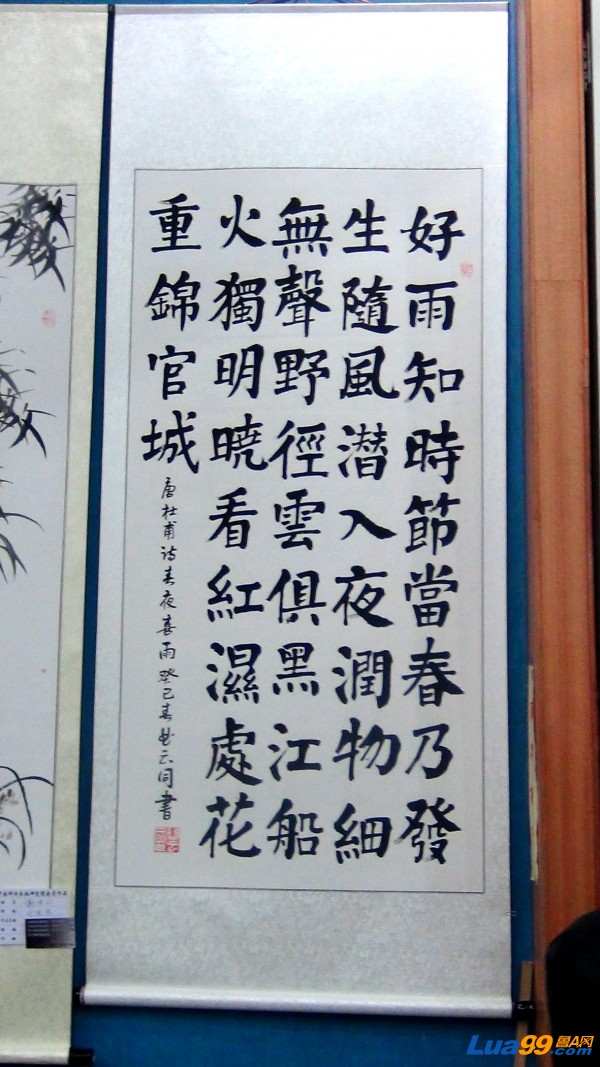 好雨知時節當春乃發
生隨風潛入夜潤物細
無聲野徑雲俱黑江船
火獨明曉看紅濕處花
重錦官城
唐杜甫诗春夜喜雨癸巳春
同書
Lua99.com
鲁A网